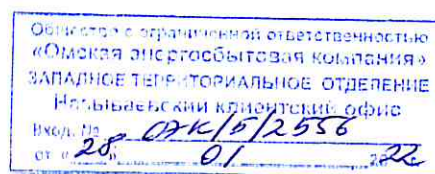 Общество с ограниченной ответственностью
«Омская энергосбытовая компания»
ЗАПАДНОЕ ТЕРРИТОРИАЛЬНОЕ ОТДЕЛЕНИЕ
Называевский клиентский офис
Вход. № ОЭК/5/2556
от «28» 01 2022г.